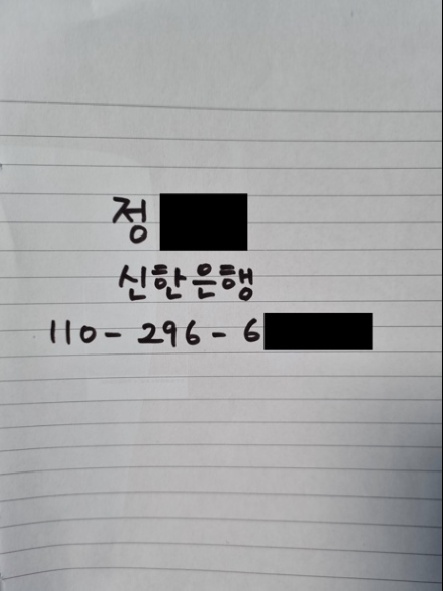 정
신한은행
110- 296- 6